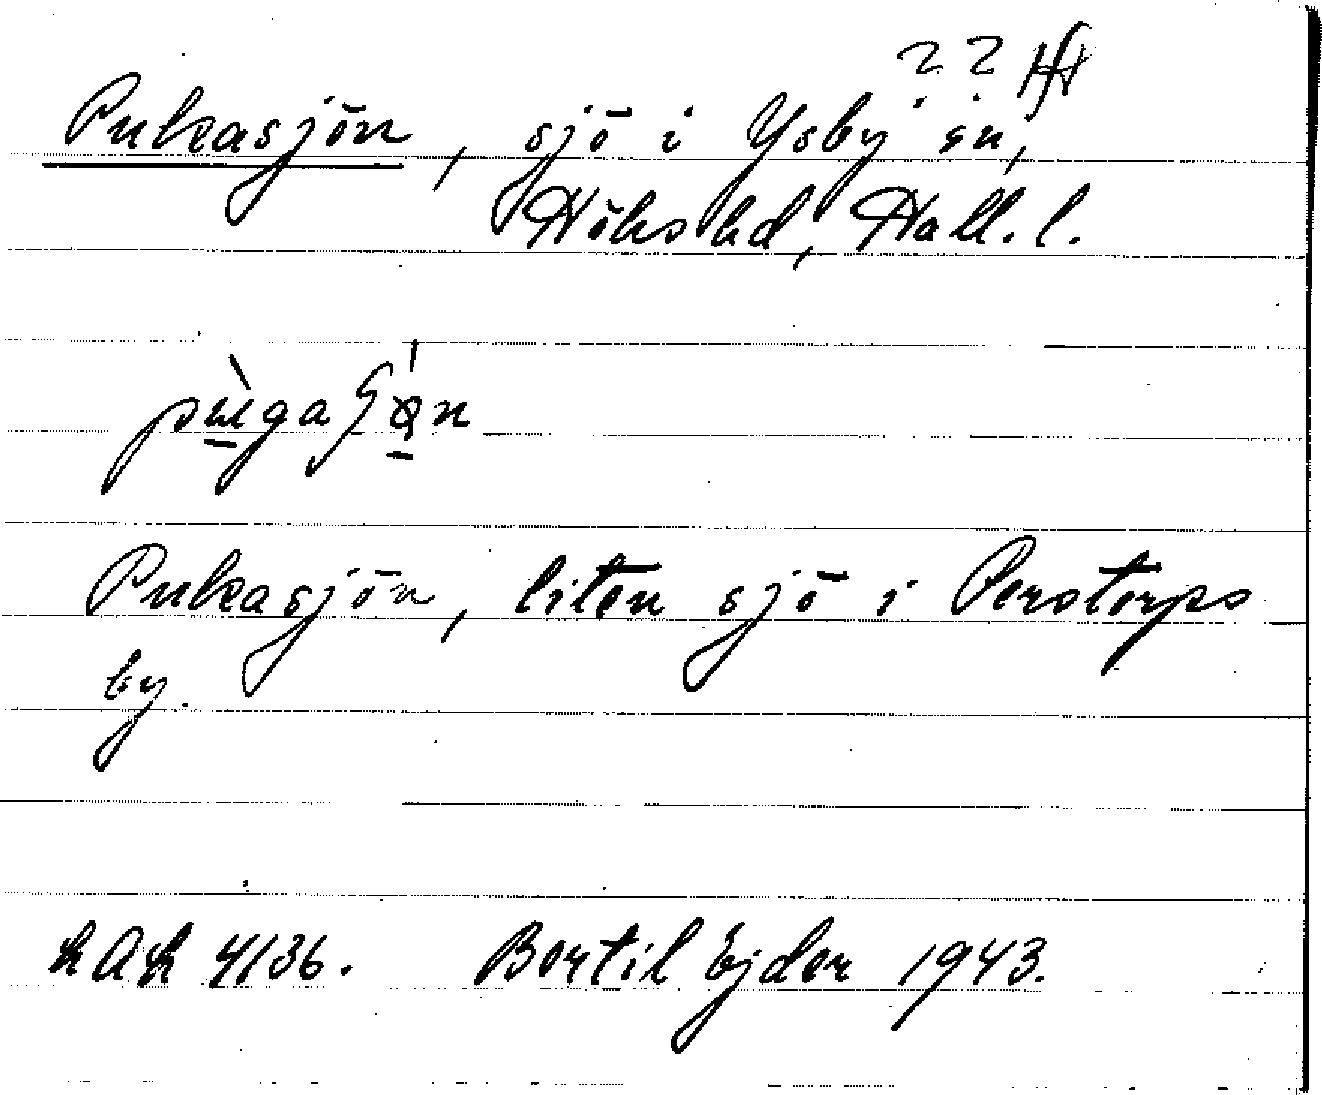 ? ? 
Pukasjön, sjö i Ysby sn,
Höks hd, Hall. l.
Pukasjön, liten sjö i Perstorps
by.
LAL 4136. Bertil Ejder 1943.